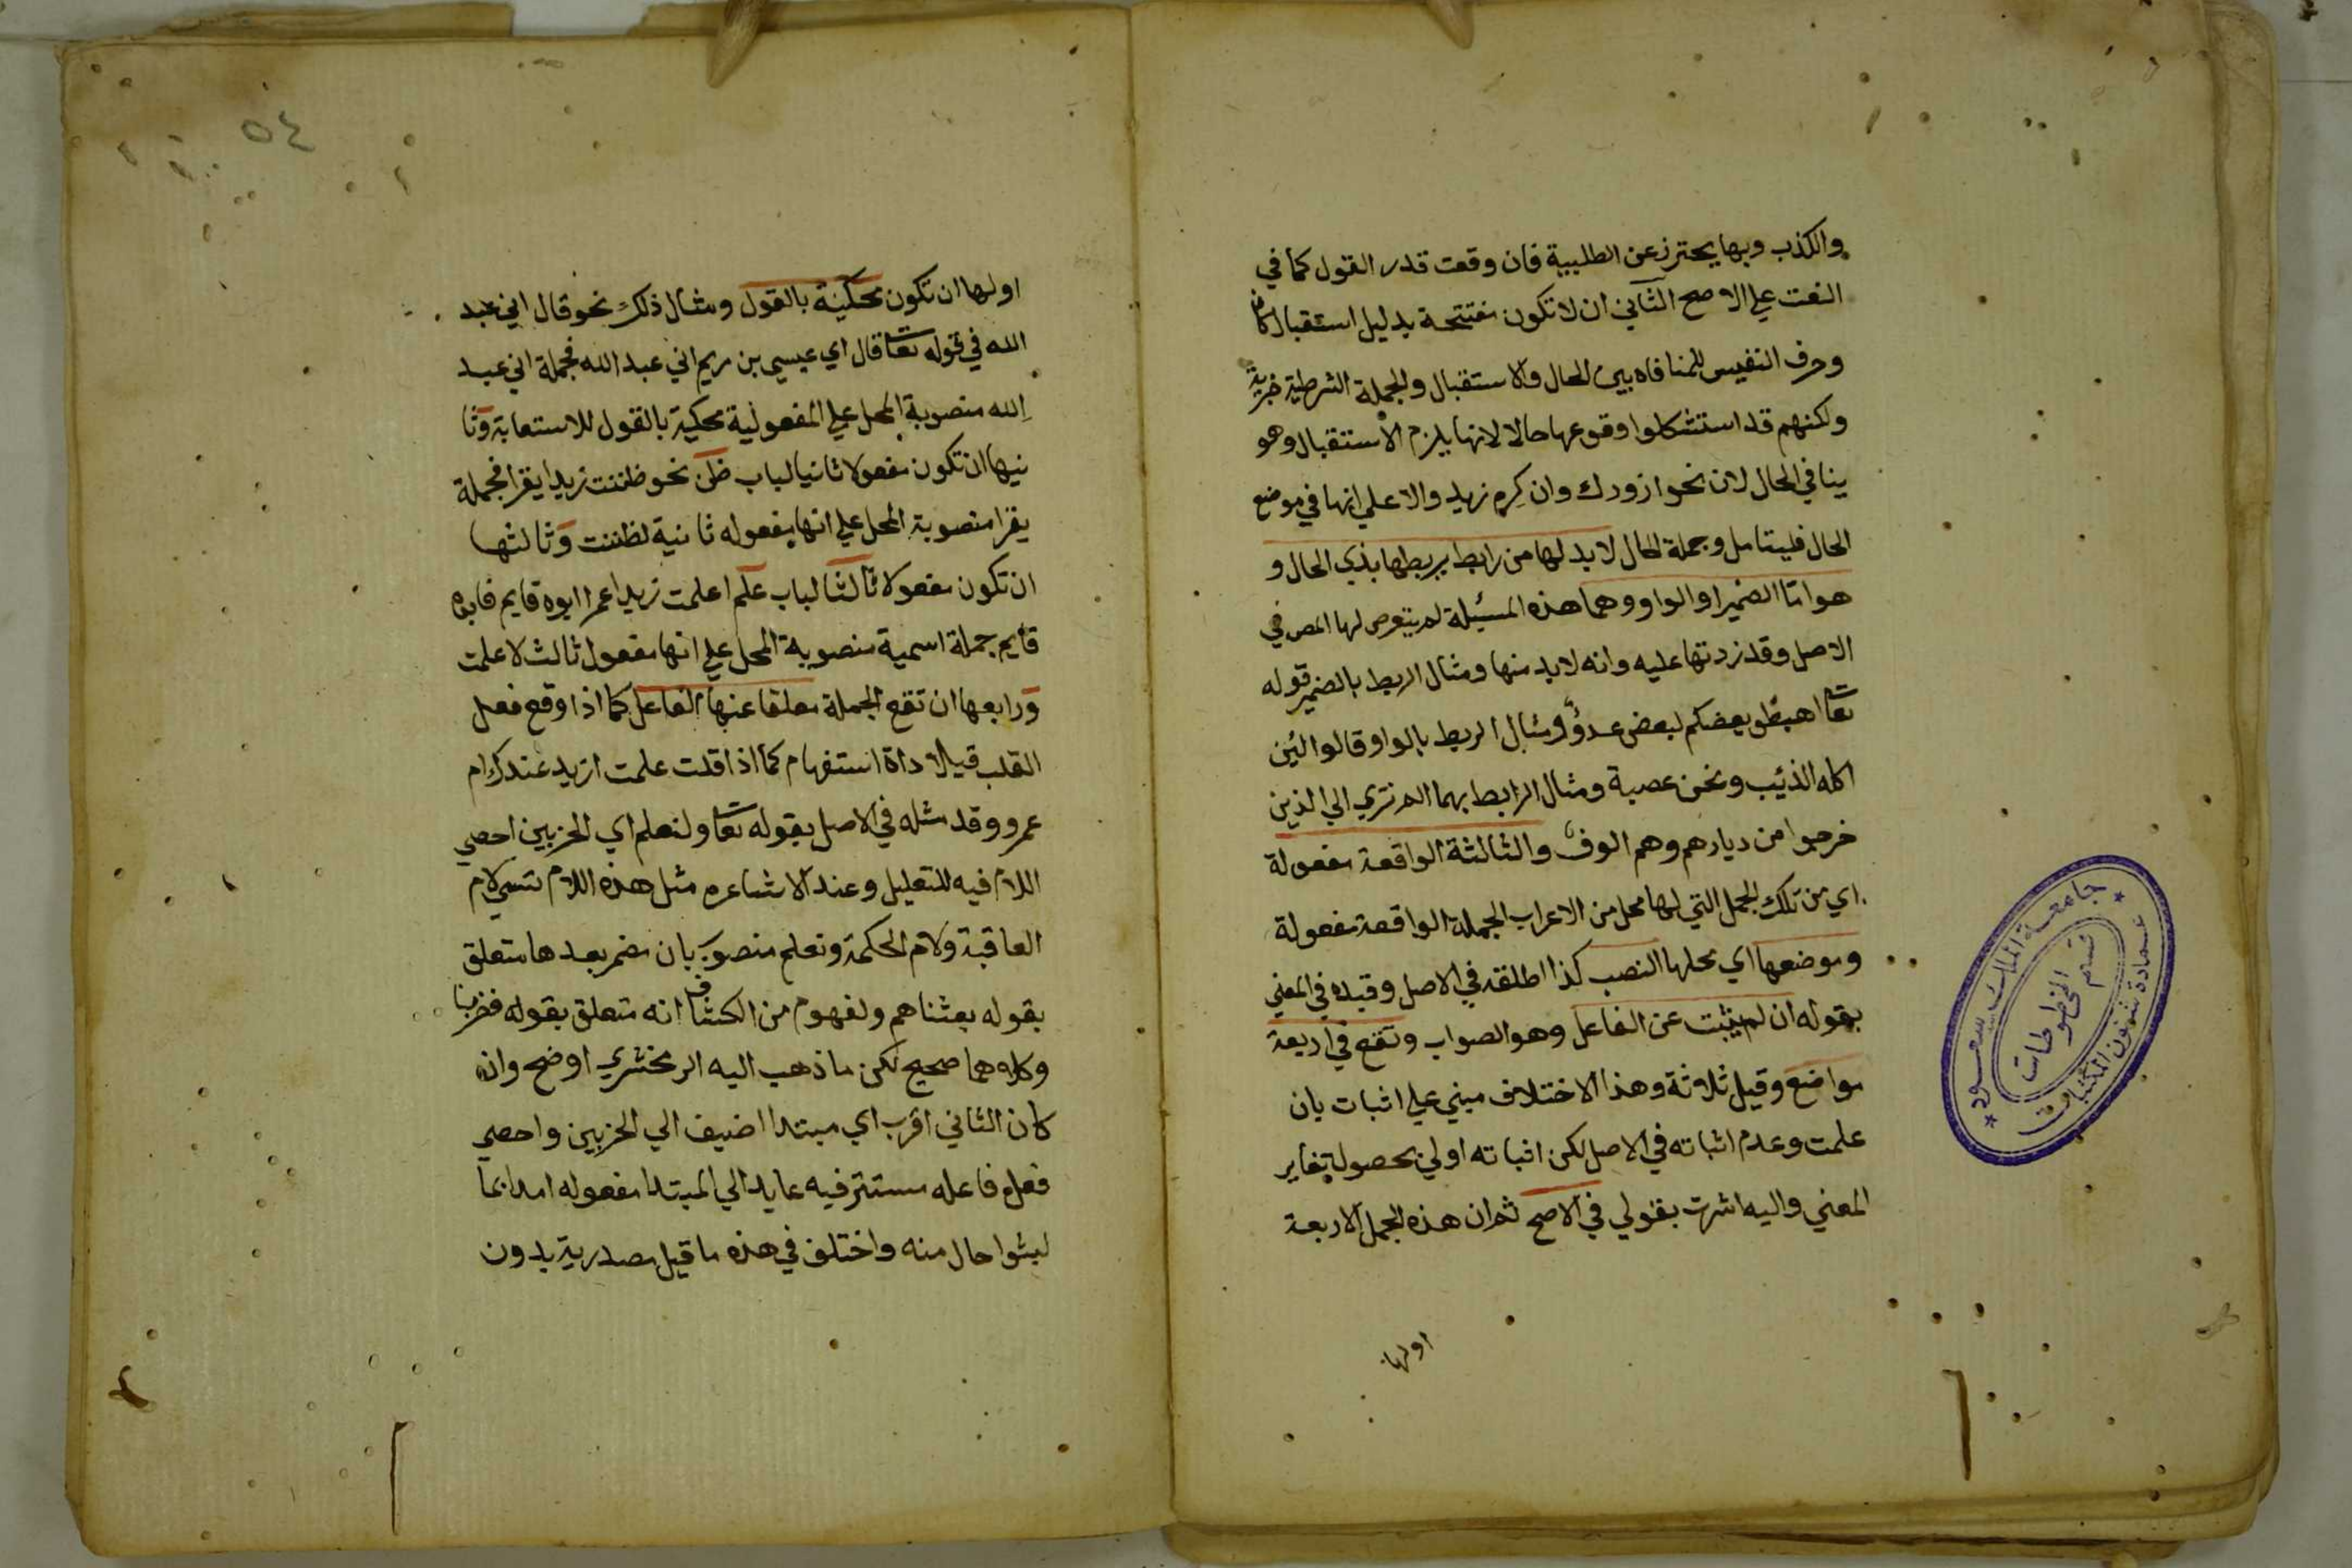 والكذب وبها يحترز عن الطلبية فان وقعت قدر القول كما في
النعت علي الاصح الثاني ان لا تكون مفتتحة بدليل استقبال كان
وحرف التنفيس للمنافاه بين الحال والاستقبال والجملة الشرطية خبرية
ولكنهم قد استشكلوا وقوعها حالا لانها يلزم الاستقبال وهو
ينافي الحال لان نحو ازورك وان كرم زيد والا علي انها في موضع
الحال فليتامل وجملة الحال لا بد لها من رابط يربطها بذي الحال و
هو امّا الضمير او الواو وهما هذه المسئلة لم يتعرص لها المص في
الاصل وقد زدتها عليه وانه لا بد منها ومثال الربط بالضمير قوله
تعا اهبطو بعضكم لبعض عدوٌّ ومثال الربط بالواو قالوا لئن
اكله الذئب ونحن عصبة ومثال الرابط بهما الم تري الي الذين
خرجوا من ديارهم وهم الوف والثالثة الواقعة مفعولة
اي من تلك الجمل التي لها محل من الاعراب الجملة الواقعة مفعولة
وموضعها اي محلها النصب كذا اطلقه في الاصل وقيده في المغني
بقوله ان لم يثبت عن الفاعل وهو الصواب وتقع في اربعة
مواضع وقيل ثلاثة وهذا الاختلاف مبني علي اثبات بان
علمت وعدم اثباته في الاصل لكن اثباته اولي بحصول تغاير
المعني واليه اشرت بقولي في الاصح ثم ان هذه الجمل الاربعة
اولها
جامعة الملك سعود
عمادة شئون المكتبات
قسم المخطوطات
٥٤
اولها ان تكون محكية بالقول ومثال ذلك نحو قال اني عبد
الله في قوله تعا قال اي عيسي بن مريم اني عبد الله فجملة اني عبد
الله منصوبة المحل علي المفعولية محكية بالقول للاستعابة وثا
نيها ان تكون مفعولا ثانيا لباب ظن نحو ظننت زيدا يقرا فجملة
يقرا منصوبة المحل علي انها مفعوله ثانية لظننت وثالثها
ان تكون مفعولا ثالثا لباب علم اعلمت زيدا عمرا ابوه قايم فابوه
قايم جملة اسمية منصوبة المحل علي انها مفعول ثالث لاعلمت
ورابعها ان تقع الجملة معلقا عنها الفاعل كما اذا وقع فعل
القلب قبل اداة استفهام كما اذا قلت علمت ازيد عندك ام
عمرو وقد مثله في الاصل بقوله تعا ولنعلم اي الحزبين احصي
اللام فيه للتعليل وعند الاشاعره مثل هذه اللام تسمي لام
العاقبة ولام الحكمة ونعلم منصوب بان مضمر بعدها متعلق
بقوله بعثناهم ولفهوم من الكشاف انه متعلق بقوله فضربنا
وكلاهما صحيح لكن ما ذهب اليه الزمخشري اوضح وان
كان الثاني اقرب اي مبتدا اضيف الي الحزبين واحصي
فعل فاعله مستتر فيه عايد الي المبتدا مفعوله امدا بما
لبثوا حال منه واختلف في هذه ما قيل مصدرية بدون